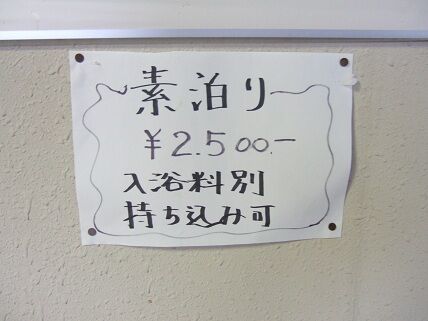 素泊り
¥2.500.-
入浴料別
持ち込み可